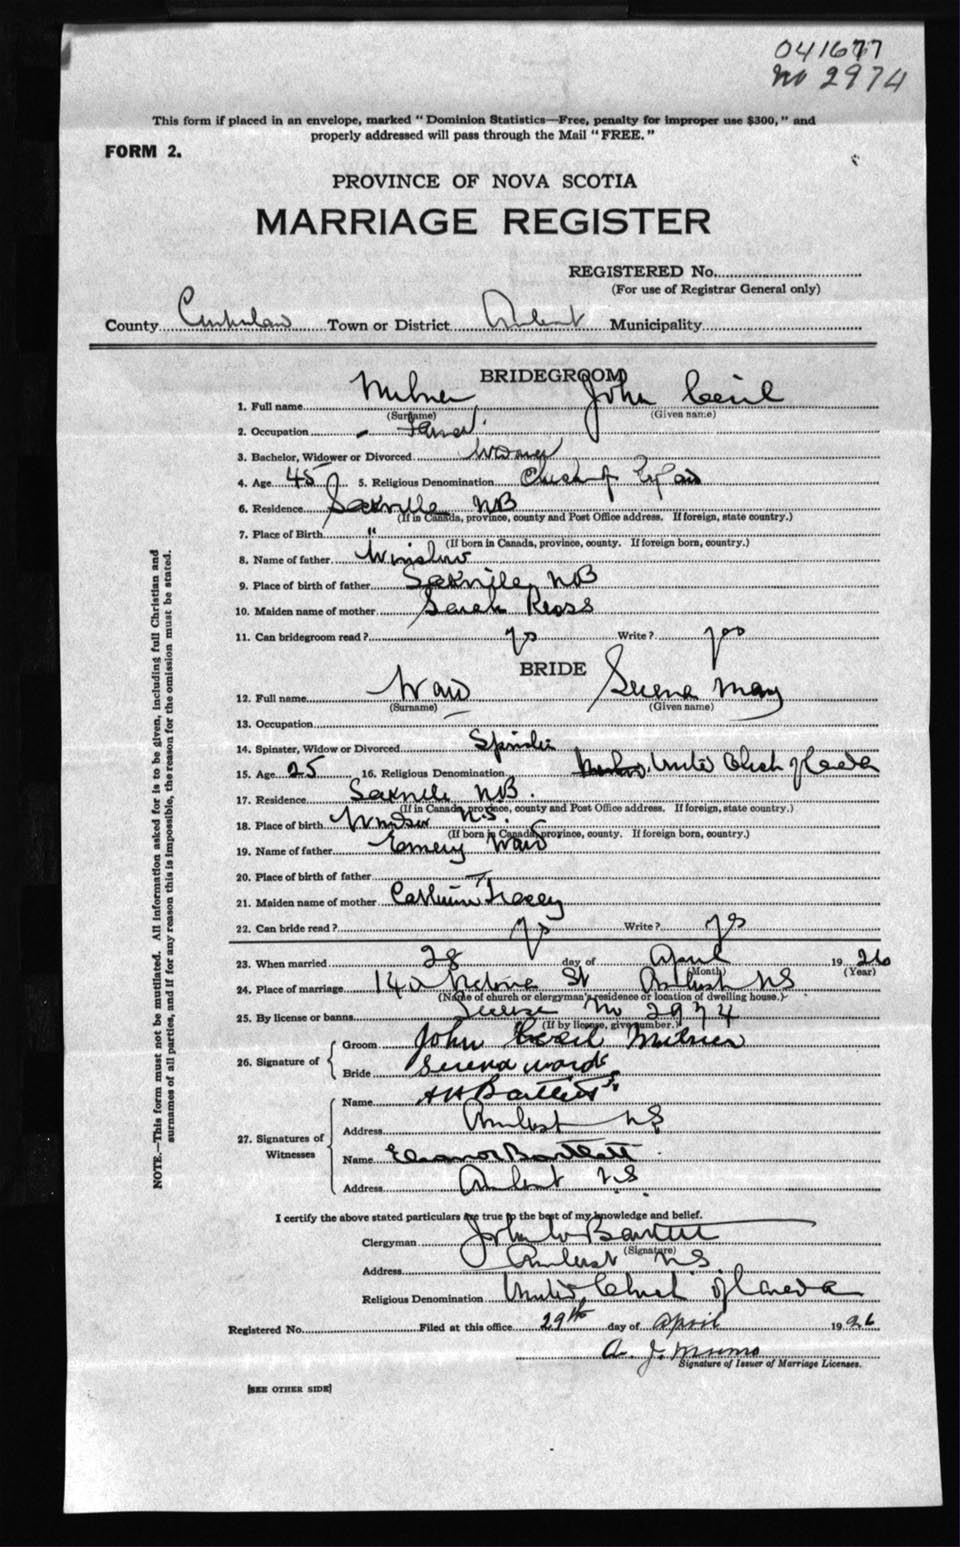 041677
No 2974
This form if placed in an envelope, marked "Dominion Statistics—Free, penalty for improper use $300," and
properly addressed will pass through the Mail "FREE."
FORM 2.
PROVINCE OF NOVA SCOTIA
MARRIAGE REGISTER
REGISTERED No.
(For use of Registrar General only)
County Town or District Amherst Municipality
BRIDEGROOM
1. Full name Milner John Cecil
(Surname) (Given name)
2. Occupation Farmer
3. Bachelor, Widower or Divorced
4. Age 45 5. Religious Denomination Church of
6. Residence Sackville NB
(If in Canada, province, county and Post Office address. If foreign, state country.)
7. Place of Birth "
(If born in Canada, province, county. If foreign born, country.)
8. Name of father Winslow
9. Place of birth of father Sackville NB
10. Maiden name of mother Sarah
11. Can bridegroom read? yes Write? yes
BRIDE
12. Full name Ward Serena May
(Surname) (Given name)
13. Occupation
14. Spinster, Widow or Divorced Spinster
15. Age 25 16. Religious Denomination United Church of Canada
17. Residence Sackville NB.
(If in Canada, province, county and Post Office address. If foreign, state country.)
18. Place of birth Windsor N.S.
(If born in Canada, province, county. If foreign born, country.)
19. Name of father Emery Ward
20. Place of birth of father —
21. Maiden name of mother Catherine Tracey
22. Can bride read? yes Write? yes
23. When married 28 day of April 1926
(Month) (Year)
24. Place of marriage 140 Victoria St Amherst NS
(Name of church or clergyman's residence or location of dwelling house.)
25. By license or banns License No 2974
(If by license, give number.)
26. Signature of Groom John Cecil Milner
Bride Serena Ward
27. Signatures of Witnesses
Name H H Bartlett
Address Amherst NS
Name Eleanor Bartlett
Address Amherst N.S.
I certify the above stated particulars are true to the best of my knowledge and belief.
Clergyman John W Bartlett
(Signature)
Address Amherst NS.
Religious Denomination United Church of Canada
Registered No. Filed at this office 29th day of April 1926
A. J. Munro
Signature of Issuer of Marriage Licenses.
[SEE OTHER SIDE]
NOTE.—This form must not be mutilated. All information asked for is to be given, including full Christian and
surnames of all parties, and if for any reason this is impossible, the reason for the omission must be stated.